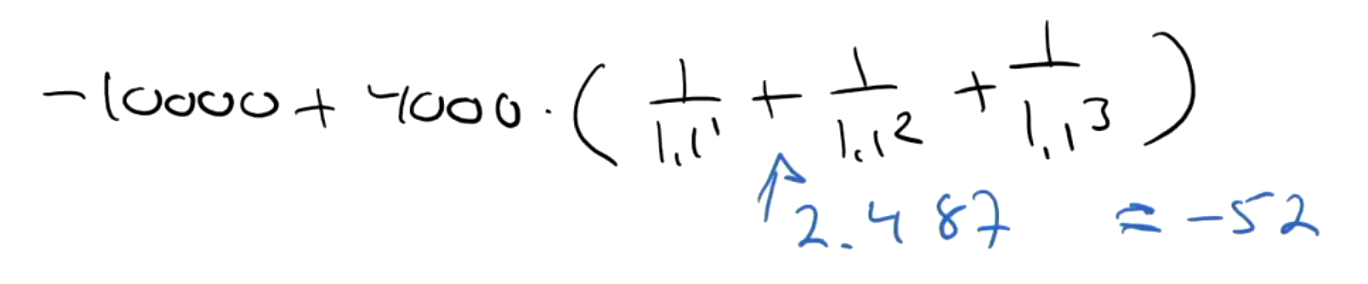 -10000 + 4000 · ( 1/1,1¹ + 1/1,1² + 1/1,1³ )
↑ 2.487 = -52